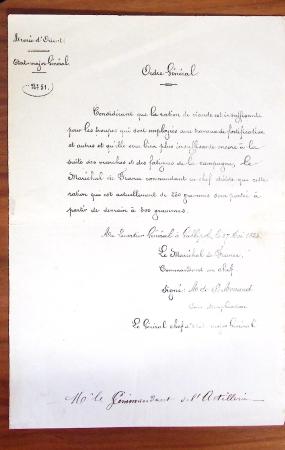 Armée d'Orient
État-major Général
Ordre Général
Considérant que la ration de viande est insuffisante
pour les troupes qui sont employées aux travaux de fortification
et autres et qu'elle sera bien plus insuffisante encore à la
suite des marches et des fatigues de la campagne, le
Maréchal de France commandant en chef décide que cette
ration qui est actuellement de 250 grammes sera portée à
partir de demain à 300 grammes.
Au Quartier Général à Gallipoli, le 27 Mai 1854
Le Maréchal de France,
Commandant en chef
Signé: M. de St Arnaud
Pour ampliation
Le Général chef d'état major Général
Mr le Commandant de l'Artillerie